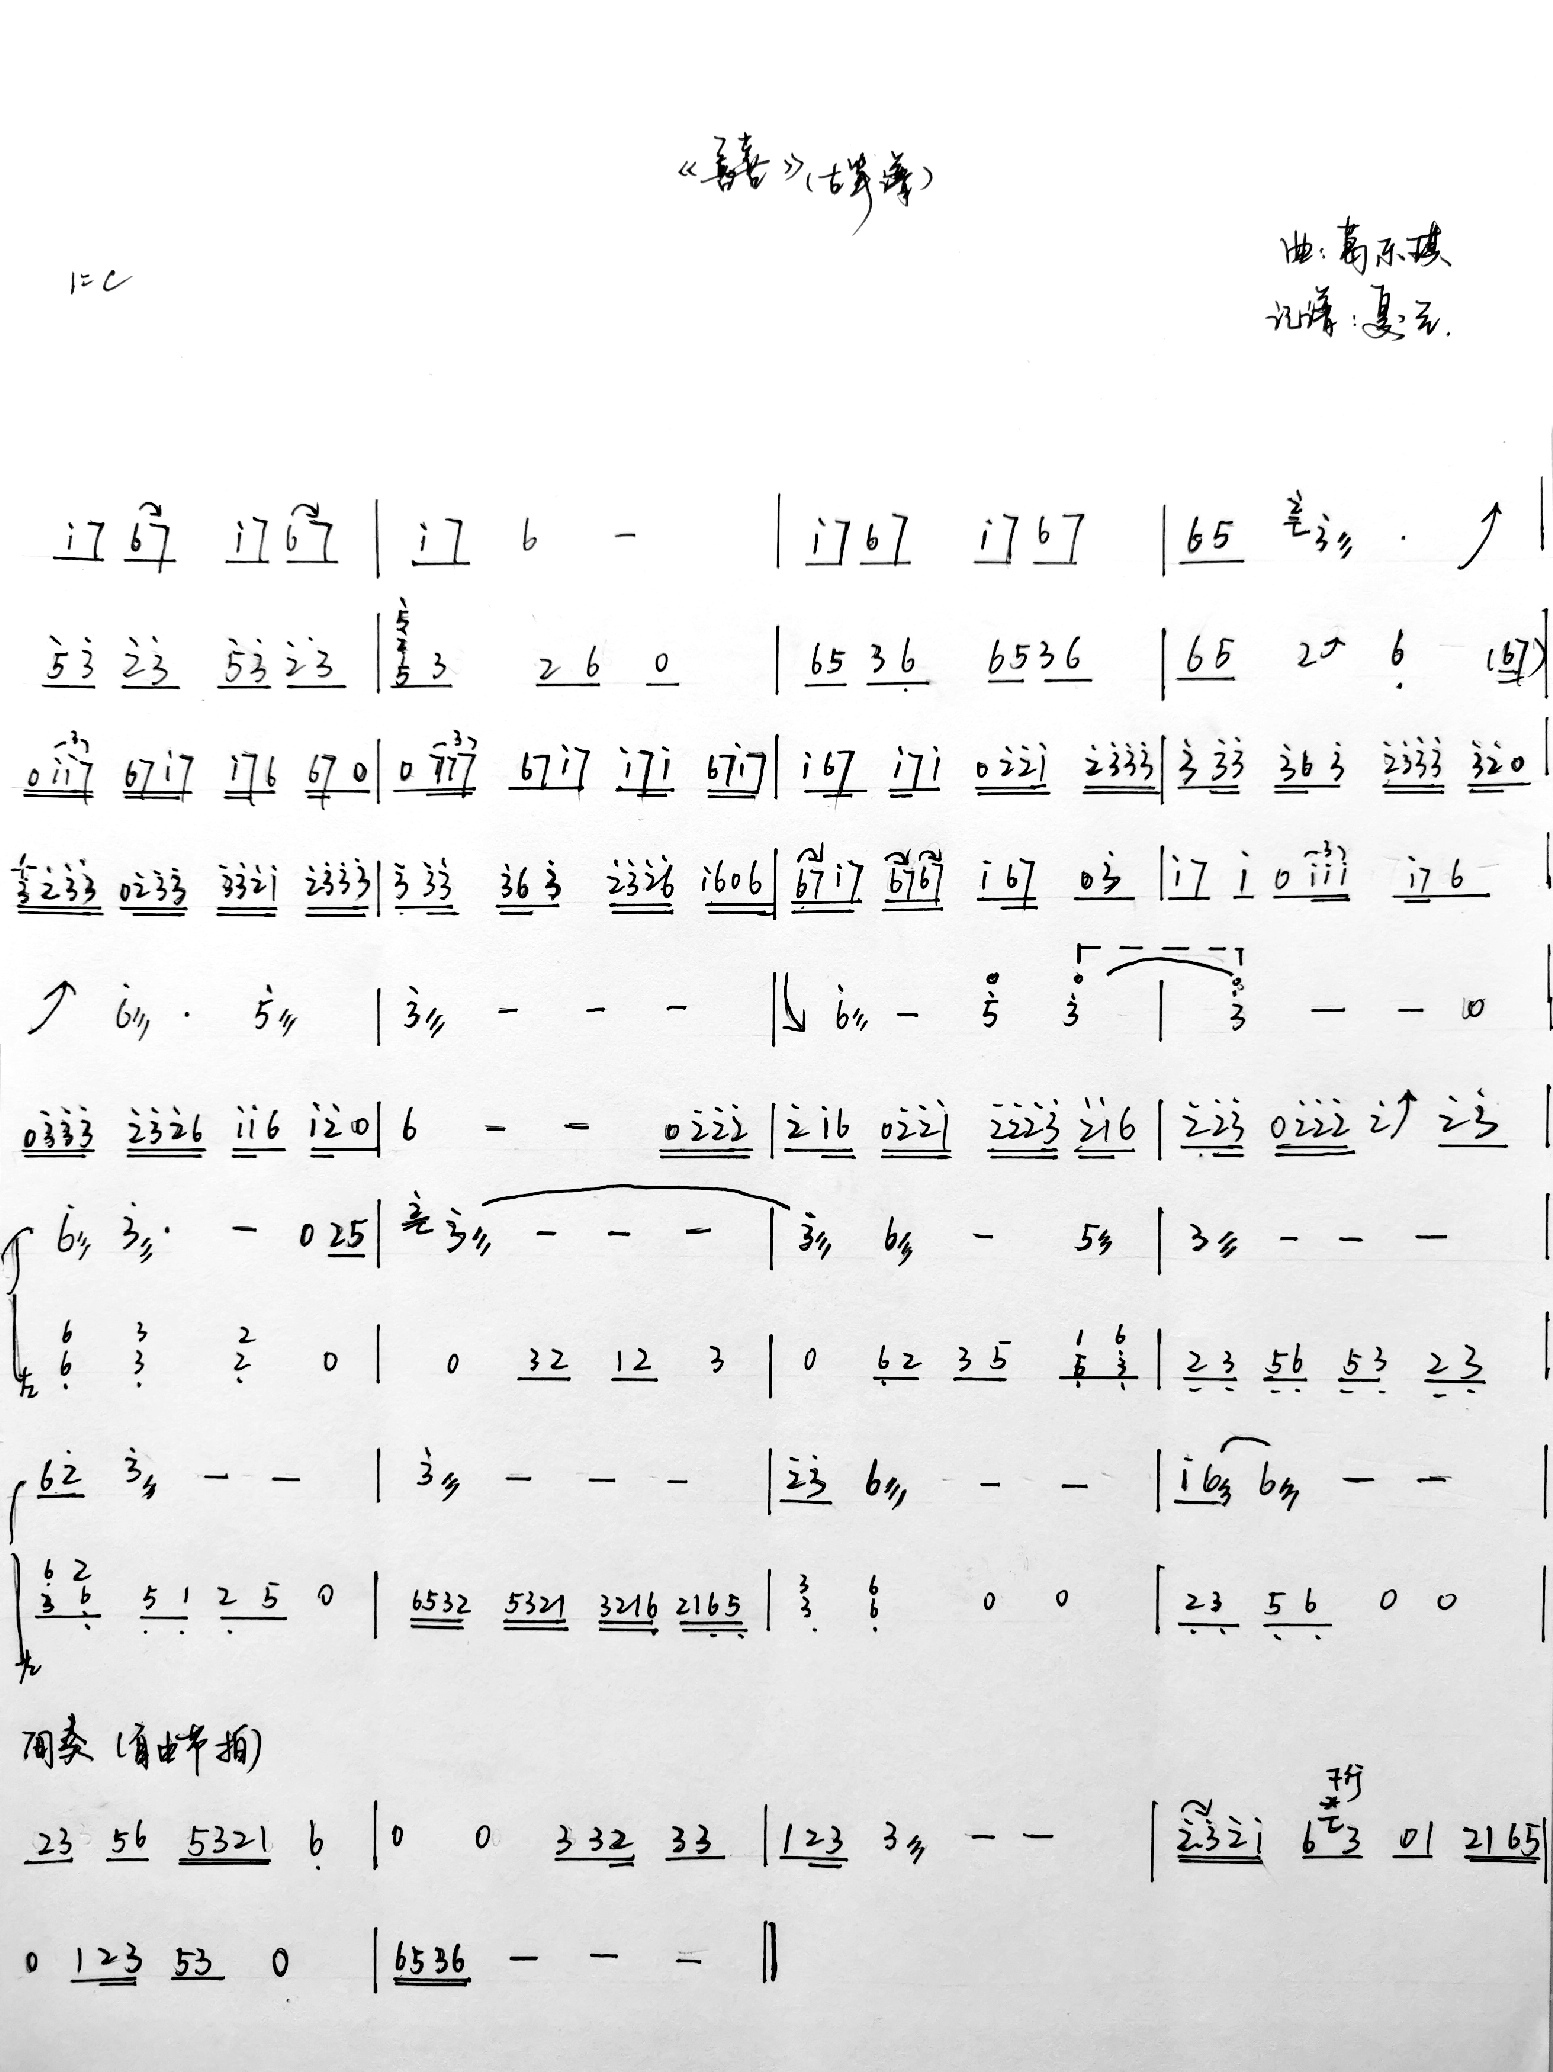 《囍》(古筝谱)
1=C
曲:葛东琪
记谱:夏云.
i7 67 i7 67 | i7 6 - | i7 67 i7 67 | 65 3 · ↗ |
53 23 53 23 | 53 26 0 | 65 36 6536 | 65 2↗ 6 (67) |
0ii7 67i7 i76 670 | 0777 67i7 i7i 67i7 | i67 i7i 022i 2333 | 333 363 2333 320 |
3233 0233 332i 2333 | 333 363 2326 i606 | 67i7 6767 i67 03 | i7 i 0iii i76 |
↗ 6 · 5 | 3 - - - | ↓ 6 - 5 3 | 3 - - 0 |
0333 2326 ii6 i20 | 6 - - 0222 | 2i6 022i 2223 2i6 | 223 0222 2↗ 23 |
6 3 · - 0 25 | 2 3 - - - | 3 6 - 5 | 3 - - - |
左 6 3 2 0 | 0 32 12 3 | 0 62 35 | 23 56 53 23 |
62 3 - - | 3 - - - | 23 6 - - | i6 6 - - |
左 62 51 25 0 | 6532 5321 3216 2165 | 3 6 0 0 | 23 56 0 0 |
间奏(自由节拍)
23 56 5321 6 | 0 0 332 33 | 123 3 - - | 232i 6 3 01 2165 |
0 123 53 0 | 6536 - - - ‖